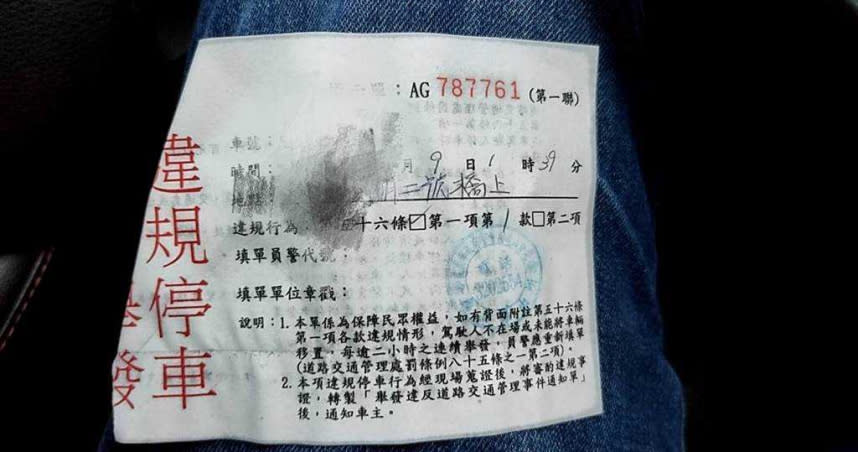 單：AG 787761 (第一聯)
車號：
時間： 月 9 日 1 時 39 分
地點： 二號橋上
違規行為： 十六條☑第一項第 1 款☐第二項
填單員警代號：
填單單位章戳：
說明：1. 本單係為保障民眾權益，如有背面附註第五十六條
第一項各款違規情形，駕駛人不在場或未能將車輛
移置，每逾二小時之連續舉發，員警應重新填單
(道路交通管理處罰條例八十五條之一第二項)。
2. 本項違規停車行為經現場蒐證後，將審酌違規事
證，轉製「舉發違反道路交通管理事件通知單」
後，通知車主。
違規停車
舉發